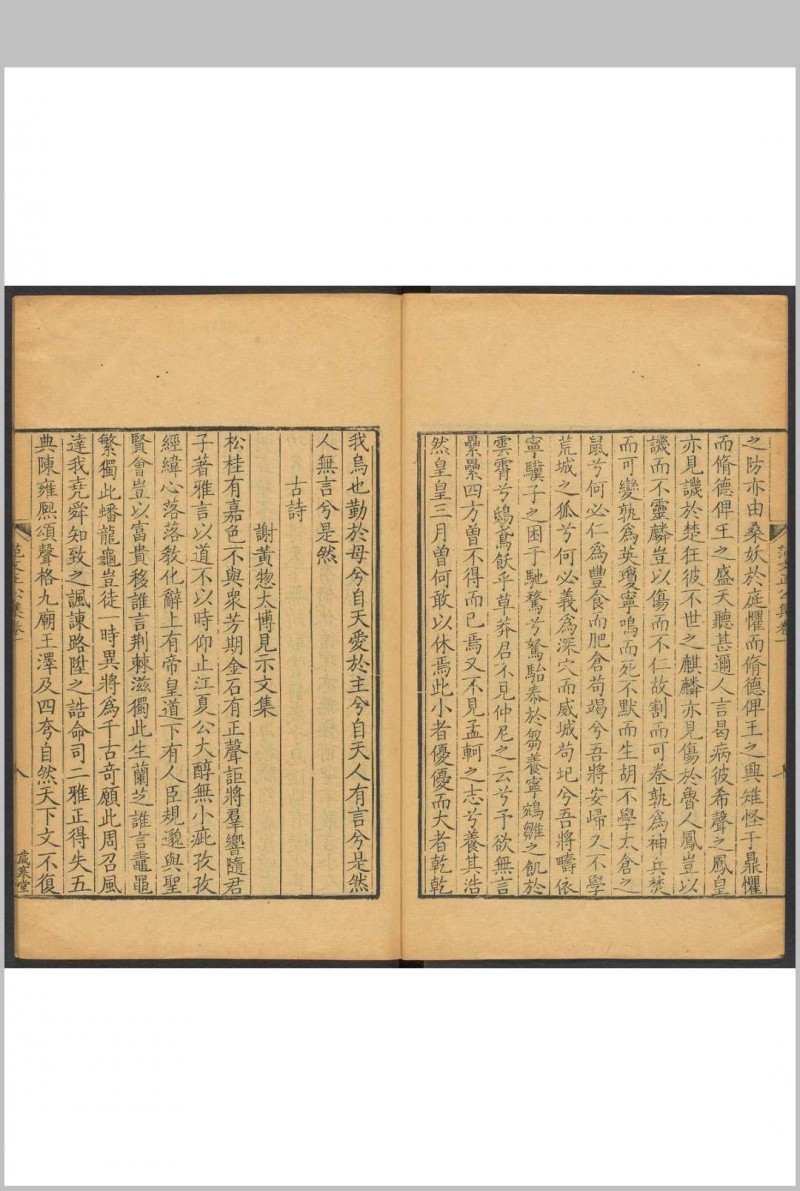 之防亦由桑妖於庭懼而脩德俾王之興雉怪于鼎懼
而脩德俾王之盛天聽甚邇人言曷病彼希聲之鳳皇
亦見譏於楚狂彼不世之麒麟亦見傷於魯人鳳豈以
譏而不靈麟豈以傷而不仁故割而可卷孰爲神兵焚
而可變孰爲英瓊寧鳴而死不默而生胡不學太倉之
鼠兮何必仁爲豐食而肥倉苟竭兮吾將安歸又不學
荒城之狐兮何必義爲深穴而威城苟圮兮吾將疇依
寧驥子之困于馳騖兮駑駘泰於芻養寧鵷雛之飢於
雲霄兮鴟鳶飫乎草莽君不見仲尼之云兮予欲無言
纍纍四方曾不得而已焉又不見孟軻之志兮養其浩
然皇皇三月曾何敢以休焉此小者優優而大者乾乾
我烏也勤於母兮自天愛於主兮自天人有言兮是然
人無言兮是然
古詩
謝黃惣太博見示文集
松桂有嘉色不與衆芳期金石有正聲詎將羣響隨君
子著雅言以道不以時仰止江夏公大醇無小疵孜孜
經緯心落落教化辭上有帝皇道下有人臣規邈與聖
賢會豈以富貴移誰言荆棘滋獨此生蘭芝誰言鼃黽
繁獨此蟠龍龜豈徒一時異將爲千古奇願此周召風
達我堯舜知致之諷諫路陞之誥命司二雅正得失五
典陳雍熙頌聲格九廟王澤及四夸自然天下文不復
范文正公集卷一
八
歲寒堂